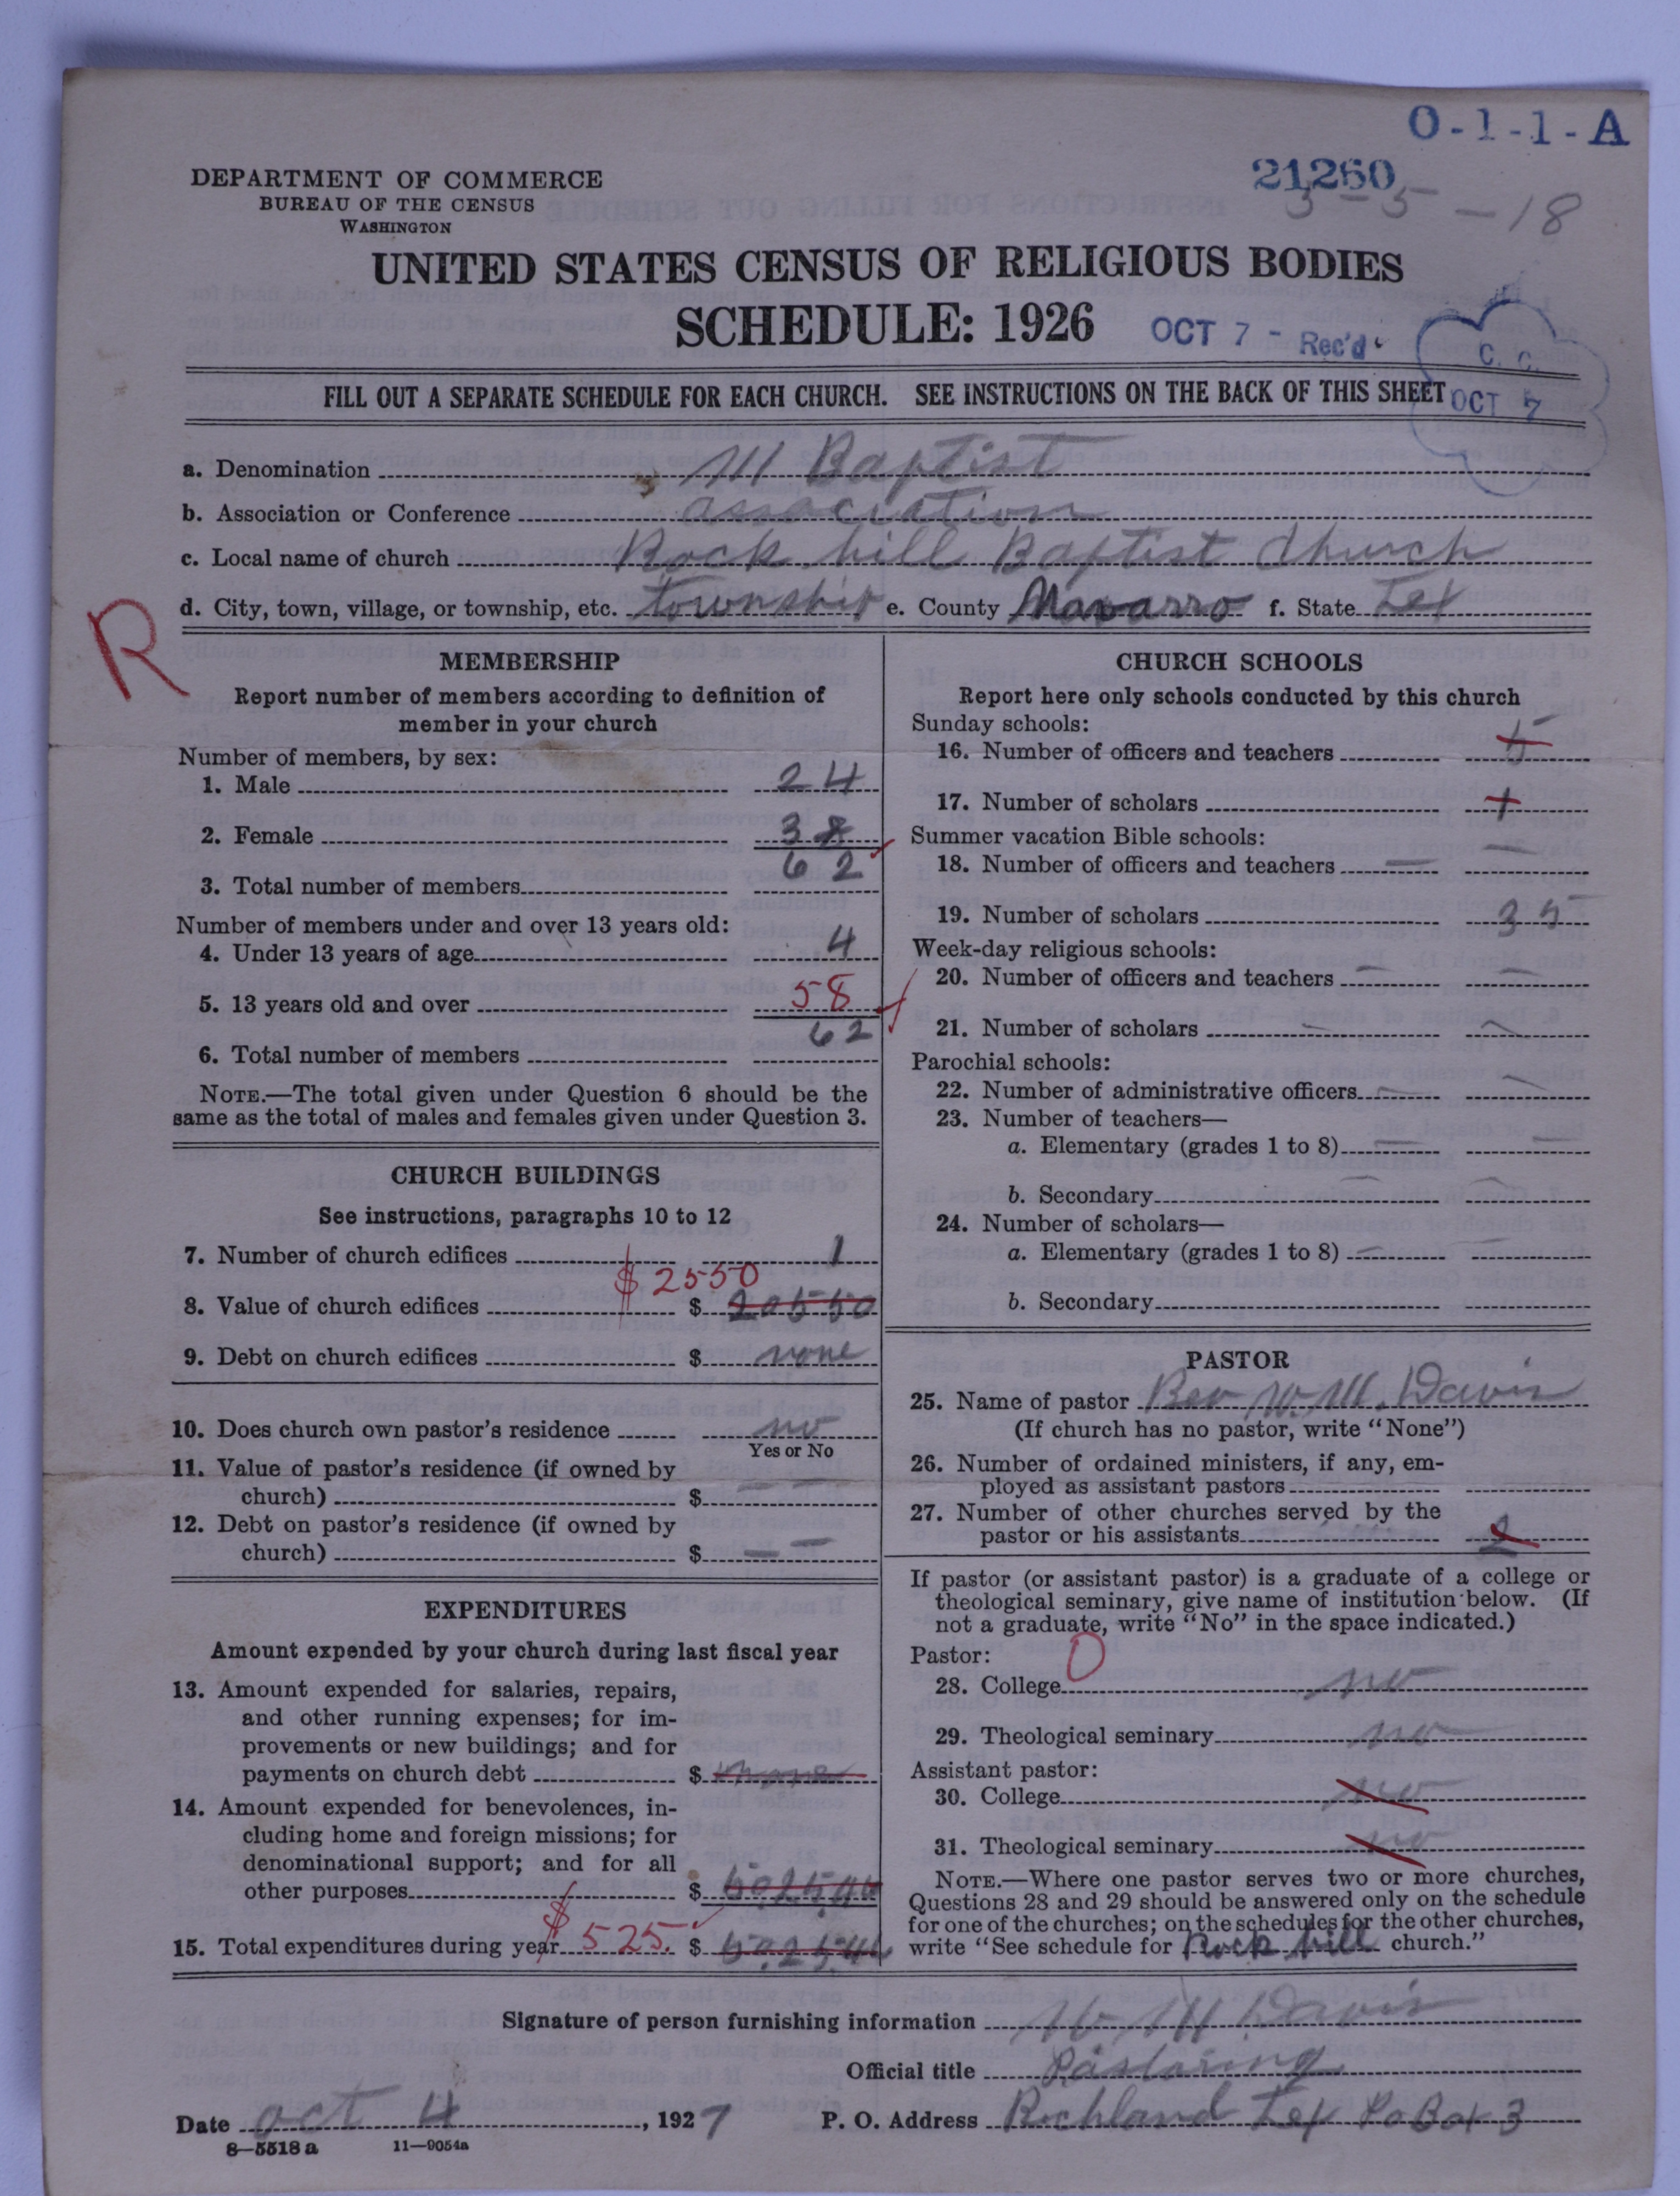 O-1-1-A
21260
3-5-18
DEPARTMENT OF COMMERCE
BUREAU OF THE CENSUS
WASHINGTON
UNITED STATES CENSUS OF RELIGIOUS BODIES
SCHEDULE: 1926
OCT 7 - Rec'd.
C. C.
OCT 7
FILL OUT A SEPARATE SCHEDULE FOR EACH CHURCH. SEE INSTRUCTIONS ON THE BACK OF THIS SHEET
a. Denomination M Baptist
b. Association or Conference association
c. Local name of church Rock hill Baptist Church
d. City, town, village, or township, etc. township e. County Navarro f. State Tex
R
MEMBERSHIP
Report number of members according to definition of
member in your church
Number of members, by sex:
1. Male 24
2. Female 38
3. Total number of members 62
Number of members under and over 13 years old:
4. Under 13 years of age 4
5. 13 years old and over 58
6. Total number of members 62
NOTE.—The total given under Question 6 should be the
same as the total of males and females given under Question 3.
CHURCH BUILDINGS
See instructions, paragraphs 10 to 12
7. Number of church edifices 1
$2550
8. Value of church edifices $ 20550
9. Debt on church edifices $ none
10. Does church own pastor's residence no
Yes or No
11. Value of pastor's residence (if owned by
church) $ — —
12. Debt on pastor's residence (if owned by
church) $ — —
EXPENDITURES
Amount expended by your church during last fiscal year
13. Amount expended for salaries, repairs,
and other running expenses; for im-
provements or new buildings; and for
payments on church debt $
14. Amount expended for benevolences, in-
cluding home and foreign missions; for
denominational support; and for all
other purposes $
15. Total expenditures during year $525. $
CHURCH SCHOOLS
Report here only schools conducted by this church
Sunday schools:
16. Number of officers and teachers 5
17. Number of scholars
Summer vacation Bible schools:
18. Number of officers and teachers — —
19. Number of scholars 35
Week-day religious schools:
20. Number of officers and teachers — —
21. Number of scholars — —
Parochial schools:
22. Number of administrative officers — —
23. Number of teachers—
a. Elementary (grades 1 to 8) — —
b. Secondary — —
24. Number of scholars—
a. Elementary (grades 1 to 8) — —
b. Secondary
PASTOR
25. Name of pastor Rev W. M. Davis
(If church has no pastor, write "None")
26. Number of ordained ministers, if any, em-
ployed as assistant pastors
27. Number of other churches served by the
pastor or his assistants 2
If pastor (or assistant pastor) is a graduate of a college or
theological seminary, give name of institution below. (If
not a graduate, write "No" in the space indicated.)
Pastor: 0
28. College no
29. Theological seminary no
Assistant pastor:
30. College no
31. Theological seminary no
NOTE.—Where one pastor serves two or more churches,
Questions 28 and 29 should be answered only on the schedule
for one of the churches; on the schedules for the other churches,
write "See schedule for Rock hill church."
Signature of person furnishing information W M Davis
Official title Pastoring
Date Oct 4, 1927 P. O. Address Richland Tex Po Box 3
8—5518 a 11—9054a